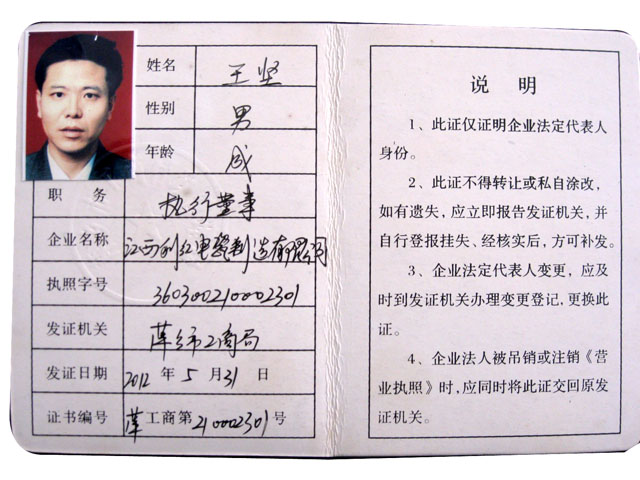 姓名 王坚
性别 男
年龄 成
职 务 执行董事
企业名称 江西利红电瓷制造有限公司
执照字号 360300210002301
发证机关 萍乡市工商局
发证日期 2012 年 5 月 31 日
证书编号 萍工商第210002301号
说 明
1、此证仅证明企业法定代表人
身份。
2、此证不得转让或私自涂改，
如有遗失，应立即报告发证机关，并
自行登报挂失、经核实后，方可补发。
3、企业法定代表人变更，应及
时到发证机关办理变更登记，更换此
证。
4、企业法人被吊销或注销《营
业执照》时，应同时将此证交回原发
证机关。